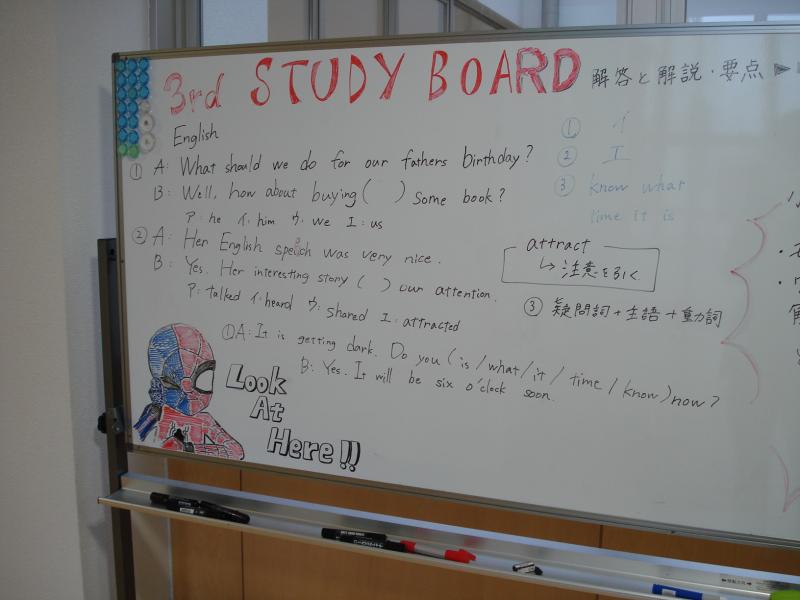 3rd STUDY BOARD
English
① A: What should we do for our fathers birthday?
B: Well, how about buying ( ) some book?
ア: he イ: him ウ: we エ: us
② A: Her English speech was very nice.
B: Yes. Her interesting story ( ) our attention.
ア: talked イ: heard ウ: shared エ: attracted
①A: It is getting dark. Do you (is / what / it / time / know) now?
B: Yes. It will be six o'clock soon.
Look
At
Here!!
解答と解説・要点
① イ
② エ
③ know what
time it is
attract
↳ 注意を引く
③ 疑問詞 + 主語 + 動詞